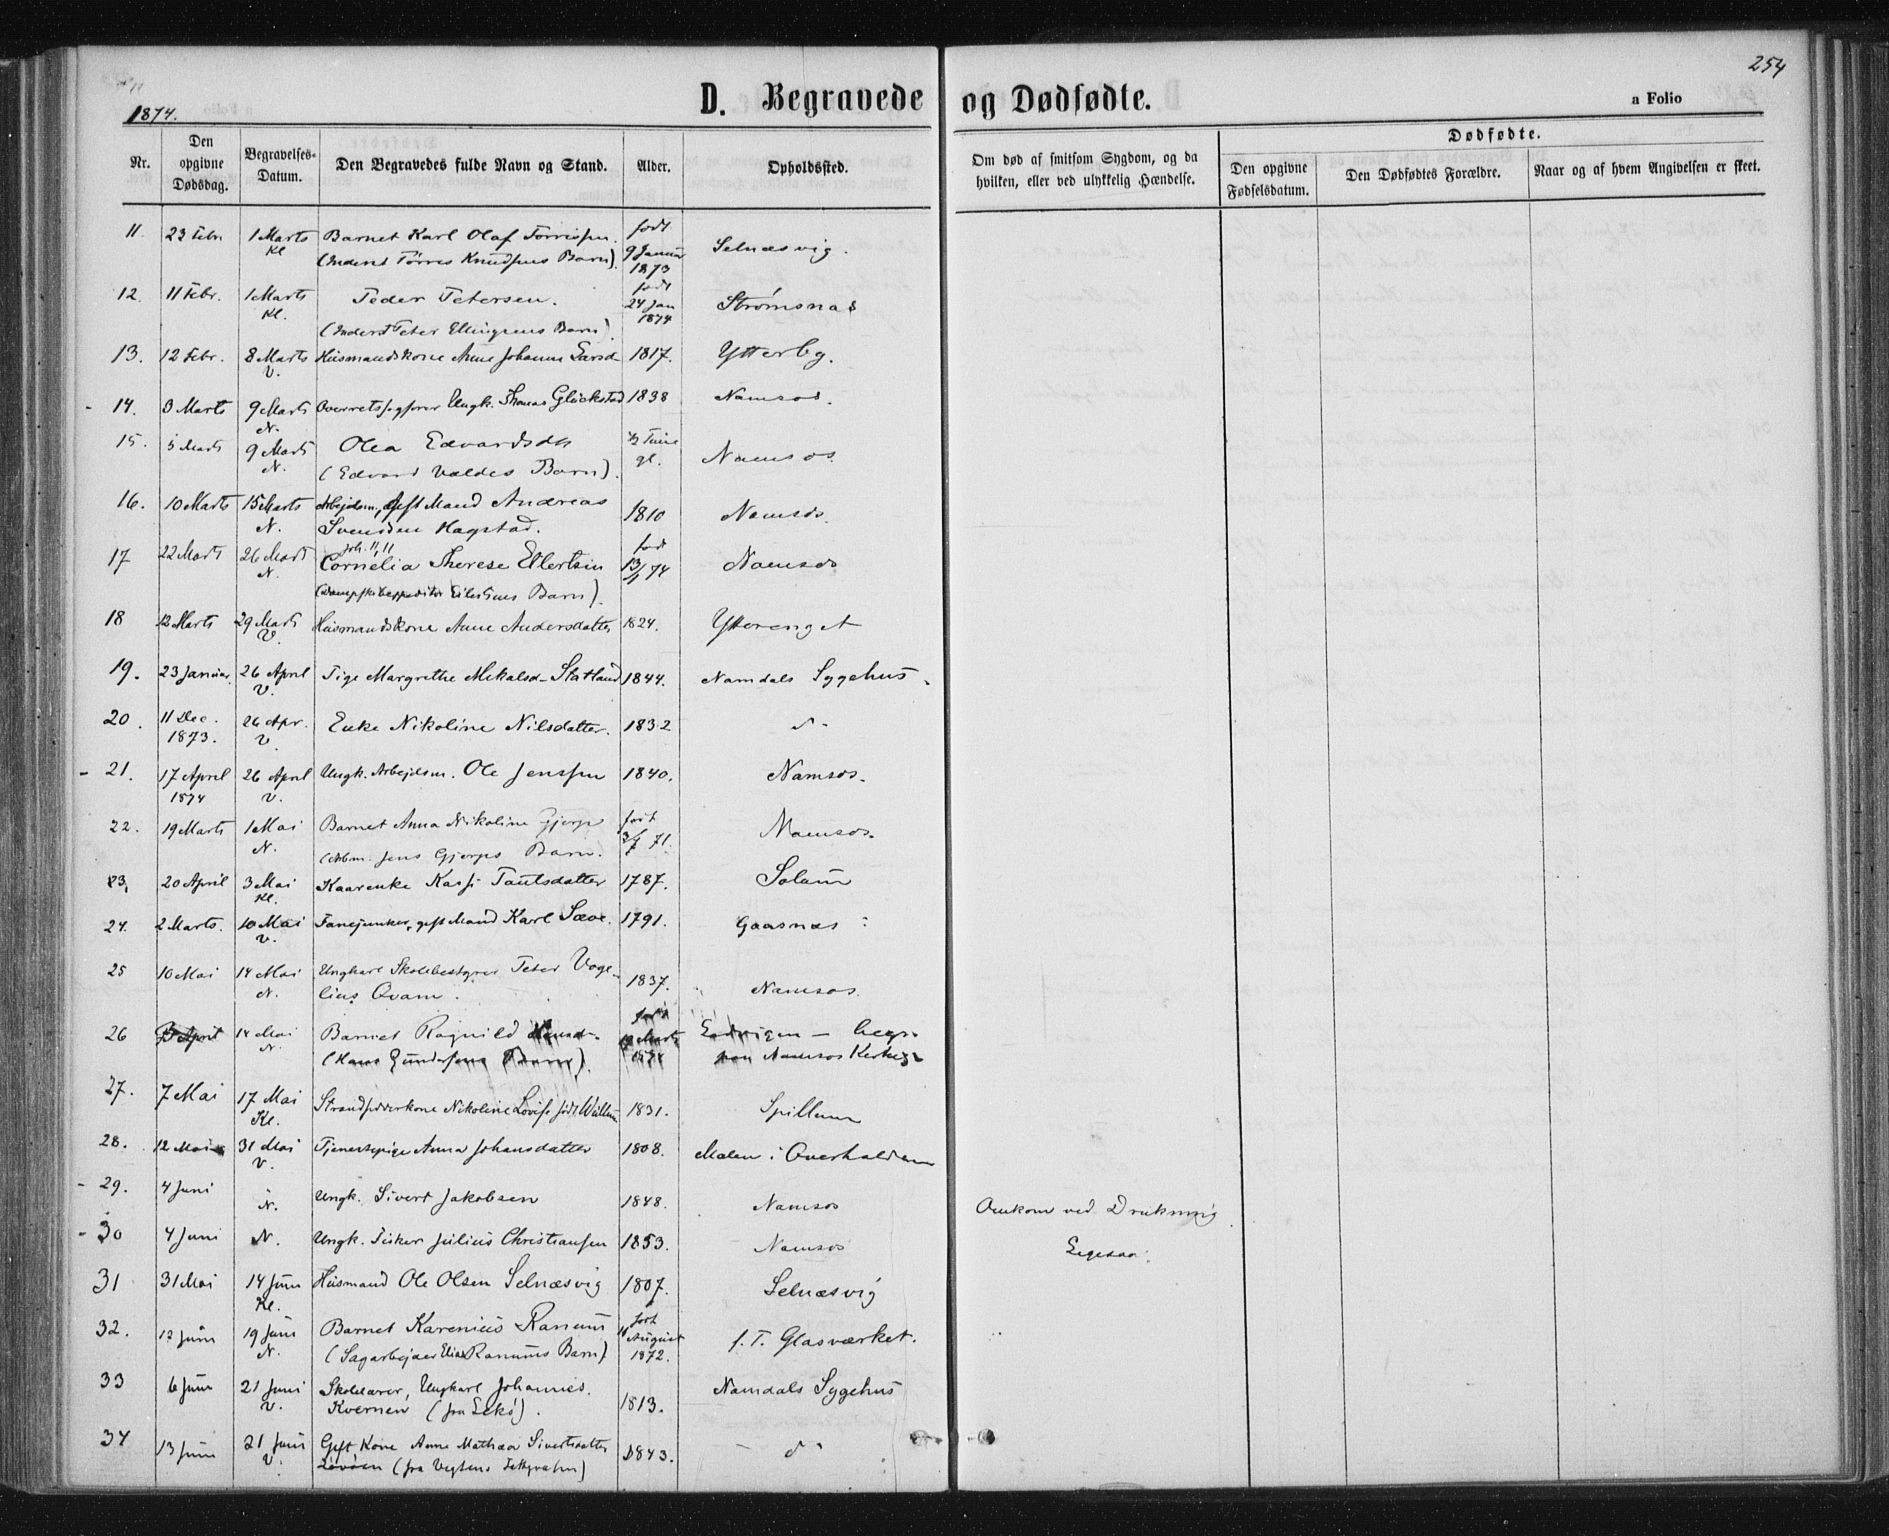 254
1874.
D. Begravede og Dødfødte.
a Folio
Nr.
Den opgivne Dødsdag.
Begravelses-Datum.
Den Begravedes fulde Navn og Stand.
Alder.
Opholdssted.
Om død af smitsom Sygdom, og da hvilken, eller ved ulykkelig Hændelse.
Dødfødte.
Den opgivne Fødselsdatum.
Den Dødfødtes Forældre.
Naar og af hvem Angivelsen er skeet.
11. 23 Febr. 1 Marts Barnet Karl Olaf født Selnæsvig.
Kl (Inderst Tørres Knudsens Barn). 9 Januar 1873
12. 11 Febr. 1 Marts Peder Petersen. født 24 Jan 1874 Strømsnæs
Kl. (Inderst Peter Ellingsens Barn)
13. 12 Febr. 8 Marts Huusmandskone Anne Johanna Larsd 1817. Ytterby.
V.
14. 3 Marts 9 Marts Overretssagfører Ungk. Thomas Glückstad 1838 Namsos.
N.
15. 5 Marts 9 Marts Olea Edvardsdtr 1/2 Time gl. Namsos.
N. (Edvard Valdes Barn).
16. 10 Marts 15 Marts Arbejdsm, gift Mand Andreas 1810 Namsos.
N. Svendsen Hagstad.
17 22 Marts 26 Marts Cornelia Therese Ellertsen født 13/1 74 Namsos
N. (Dampskibsexpeditør Eilertsens Barn).
18 12 Marts 29 Marts Huusmandskone Anne Andersdatter 1824. Ytterenget
V.
19. 23 Januar. 26 April Pige Margrethe Mikalsd. Statland 1844. Namdals Sygehus.
V.
20. 11 Dec. 1873. 26 Apr. Enke Nikoline Nilsdatter. 1832
V.
21. 17 April 1874 26 April Ungk. Arbejdsm. Ole Jenssen 1840. Namsos.
V.
22. 19 Marts 1 Mai Barnet Anna Nikoline Gjerp født 71. Namsos.
N. (Arbm. Jens Gjerps Barn.
23, 20 April 3 Mai Kaarenke 1787. Solum
Kl.
24. 2 Marts. 10 Mai Fanejunker, gift Mand Karl Sæve. 1791. Gaasnæs
V.
25 10 Mai 14 Mai Ungkarl Skolebestyrer Peter Voge- 1837. Namsos.
N. lius Qvam.
26 April 14 Mai Barnet Ragnild født Marts 1874 begr.
N. (Hans Gundersens Barn). paa Namsos Kirkeg.
27. 7 Mai 17 Mai Strandsidderkone Nikoline Lovise født 1831. Spillum
Kl.
28. 12 Mai 31 Mai Tjenestepige Anna Johansdatter 1808. Malen i Overhalden
V.
29. 4 Juni N. Ungk. Sivert Jakobsen 1848. Namsos Omkom ved Drukning.
30 4 Juni N. Ungk. Fisker Julius Christiansen 1853. Namsos Ligesaa.
31 31 Mai 14 Juni Huusmand Ole Olsen Selnæsvig 1807. Selnæsvig
Kl.
32. 12 Juni 19 Juni Barnet Karenius Ranum født 11 August 1872. f. T. Glasværket.
N. (Sagarbejder Elias Ranums Barn)
33 6 Juni 21 Juni Skolelærer, Ungkarl Johannes 1813. Namdals Sygehus
V. Kvernen (fra Lekø).
34 13 Juni 21 Juni Gift Kone Anne Mathea Sivertsdatter 1843. — d°
V. Løvøen (fra